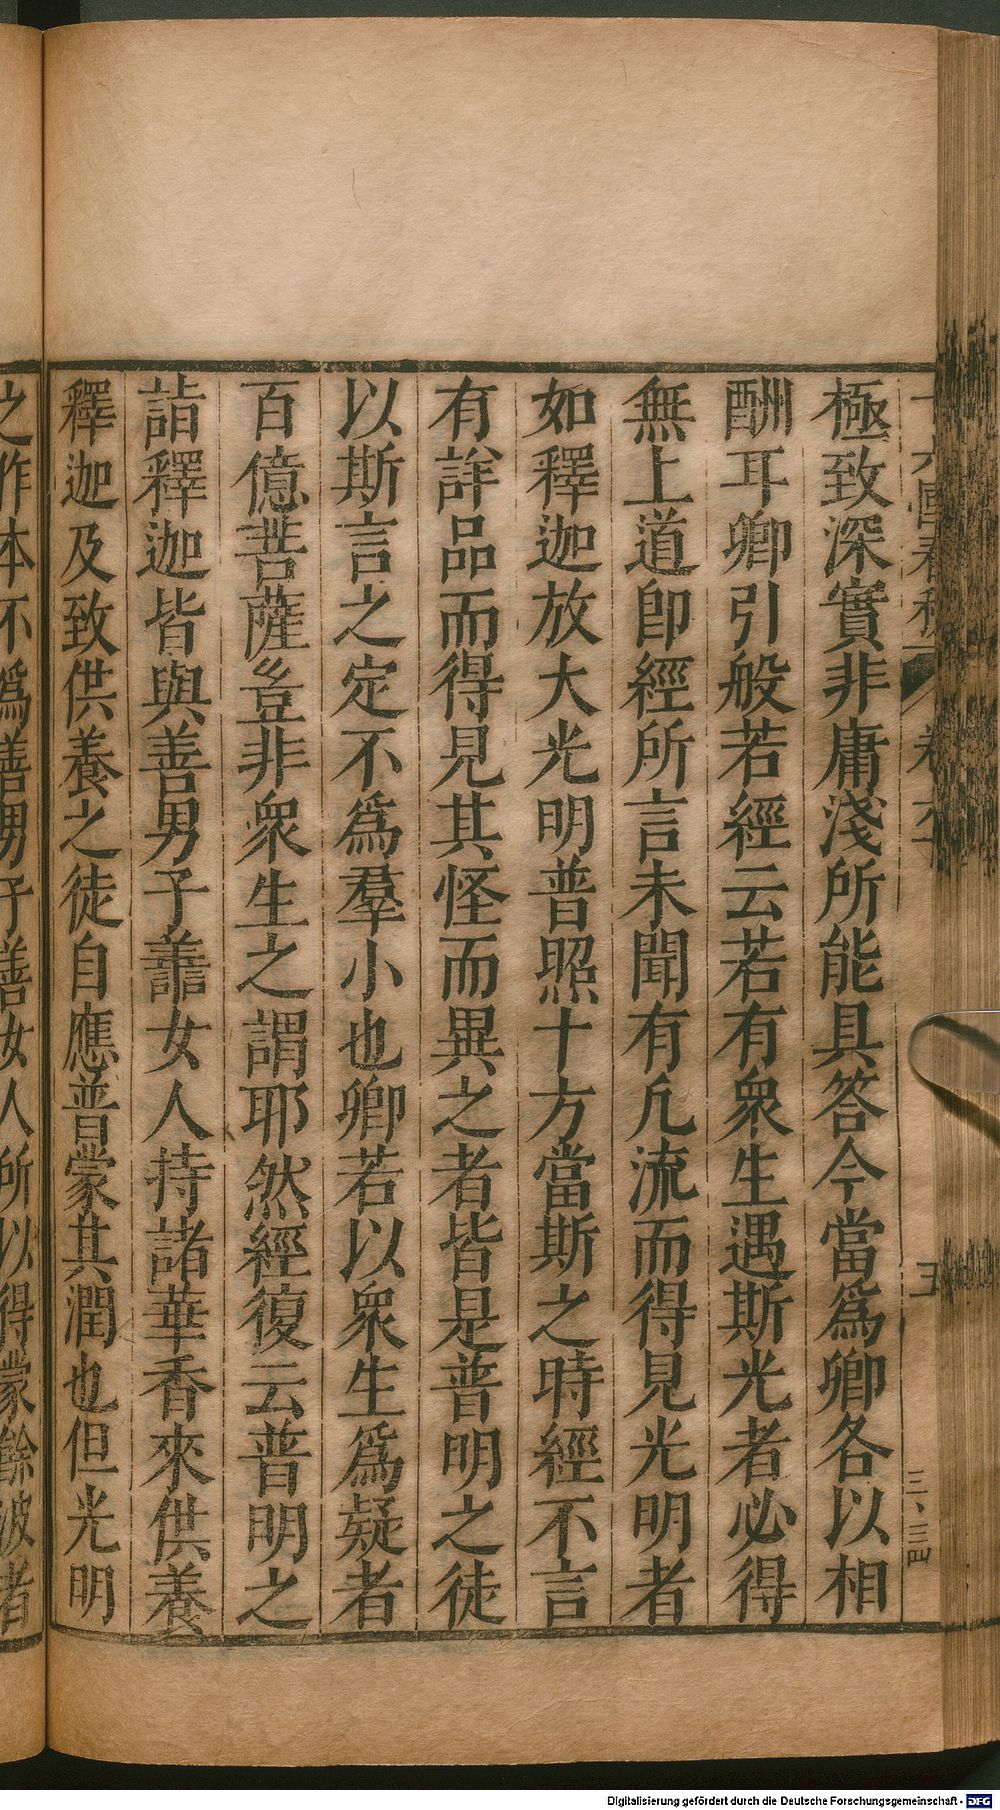 極致深實非庸淺所能具答今當爲卿各以相
酬耳卿引般若經云若有衆生遇斯光者必得
無上道卽經所言未聞有凢流而得見光明者
如釋迦放大光明普照十方當斯之時經不言
有詳品而得見其怪而異之者皆是普明之徒
以斯言之定不爲羣小也卿若以衆生爲疑者
百億菩薩豈非衆生之謂耶然經復云普明之
詣釋迦皆與善男子善女人持諸華香來供養
釋迦及致供養之徒自應普蒙其潤也但光明
之作本不爲善男子善女人所以得蒙餘波者
五
三、三四
Digitalisierung gefördert durch die Deutsche Forschungsgemeinschaft - DFG